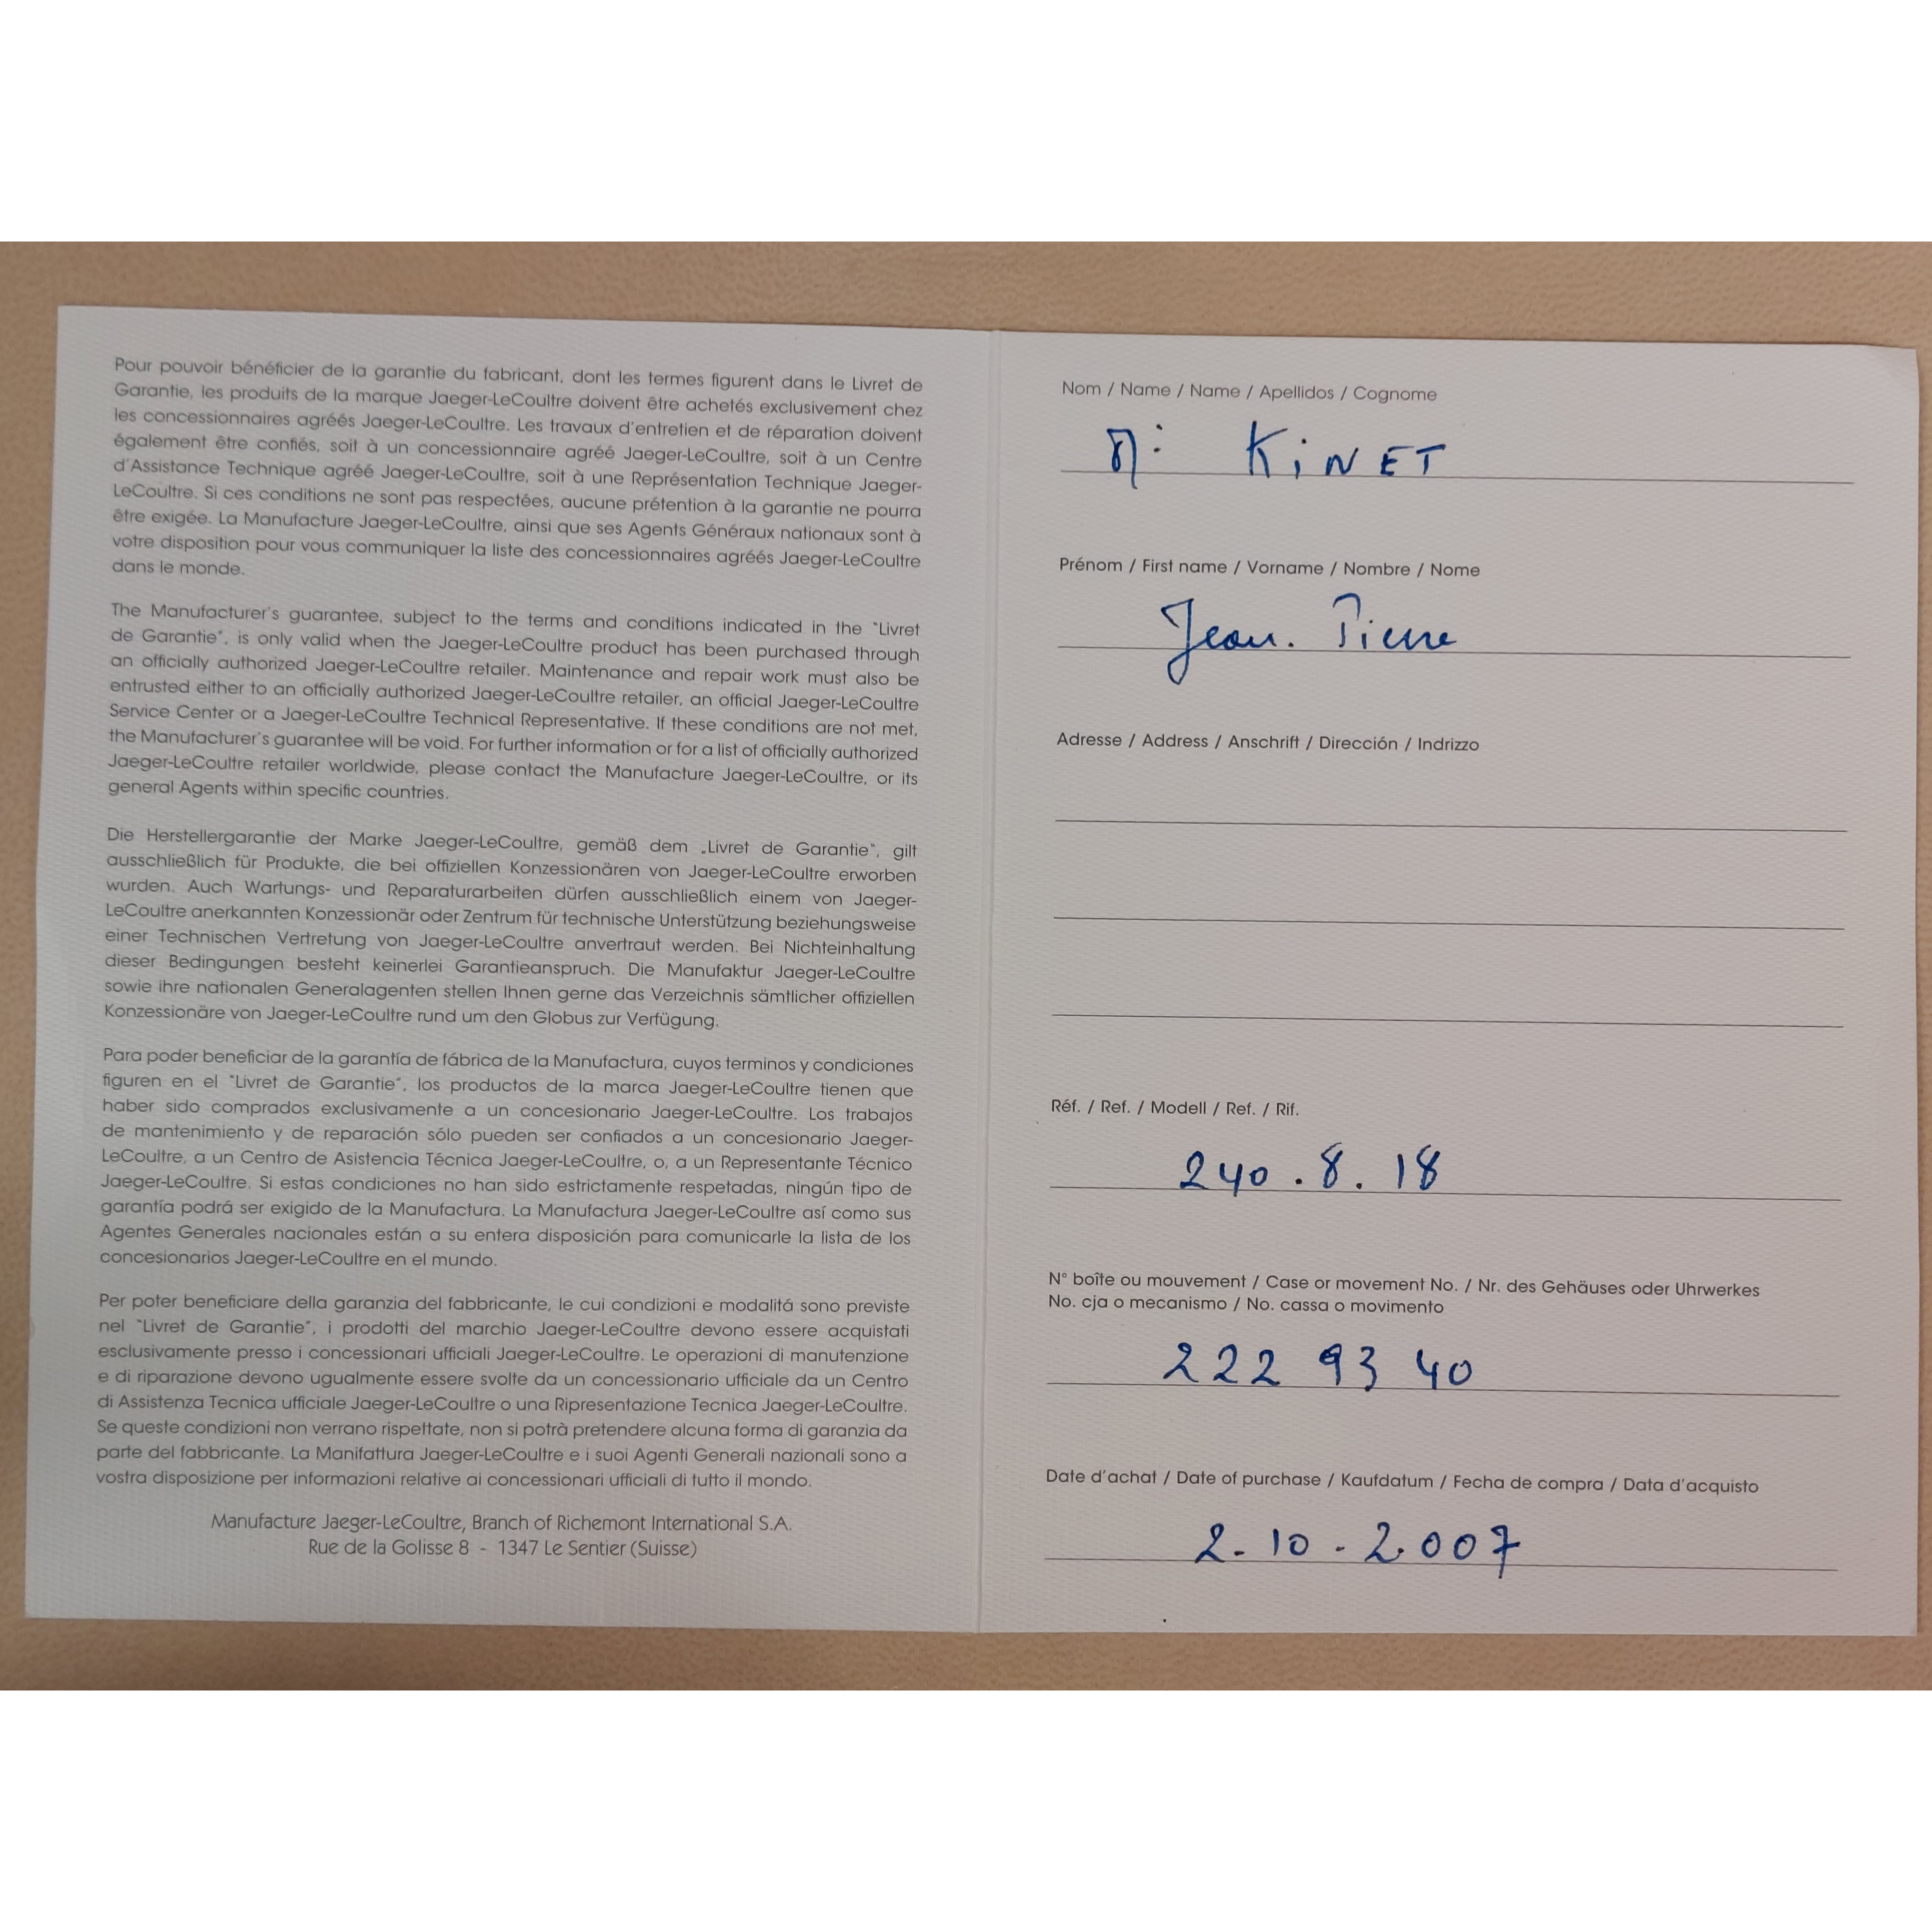 Pour pouvoir bénéficier de la garantie du fabricant, dont les termes figurent dans le Livret de
Garantie, les produits de la marque Jaeger-LeCoultre doivent être achetés exclusivement chez
les concessionnaires agréés Jaeger-LeCoultre. Les travaux d'entretien et de réparation doivent
également être confiés, soit à un concessionnaire agréé Jaeger-LeCoultre, soit à un Centre
d'Assistance Technique agréé Jaeger-LeCoultre, soit à une Représentation Technique Jaeger-
LeCoultre. Si ces conditions ne sont pas respectées, aucune prétention à la garantie ne pourra
être exigée. La Manufacture Jaeger-LeCoultre, ainsi que ses Agents Généraux nationaux sont à
votre disposition pour vous communiquer la liste des concessionnaires agréés Jaeger-LeCoultre
dans le monde.
The Manufacturer's guarantee, subject to the terms and conditions indicated in the "Livret
de Garantie", is only valid when the Jaeger-LeCoultre product has been purchased through
an officially authorized Jaeger-LeCoultre retailer. Maintenance and repair work must also be
entrusted either to an officially authorized Jaeger-LeCoultre retailer, an official Jaeger-LeCoultre
Service Center or a Jaeger-LeCoultre Technical Representative. If these conditions are not met,
the Manufacturer's guarantee will be void. For further information or for a list of officially authorized
Jaeger-LeCoultre retailer worldwide, please contact the Manufacture Jaeger-LeCoultre, or its
general Agents within specific countries.
Die Herstellergarantie der Marke Jaeger-LeCoultre, gemäß dem „Livret de Garantie“, gilt
ausschließlich für Produkte, die bei offiziellen Konzessionären von Jaeger-LeCoultre erworben
wurden. Auch Wartungs- und Reparaturarbeiten dürfen ausschließlich einem von Jaeger-
LeCoultre anerkannten Konzessionär oder Zentrum für technische Unterstützung beziehungsweise
einer Technischen Vertretung von Jaeger-LeCoultre anvertraut werden. Bei Nichteinhaltung
dieser Bedingungen besteht keinerlei Garantieanspruch. Die Manufaktur Jaeger-LeCoultre
sowie ihre nationalen Generalagenten stellen Ihnen gerne das Verzeichnis sämtlicher offiziellen
Konzessionäre von Jaeger-LeCoultre rund um den Globus zur Verfügung.
Para poder beneficiar de la garantía de fábrica de la Manufactura, cuyos terminos y condiciones
figuren en el "Livret de Garantie", los productos de la marca Jaeger-LeCoultre tienen que
haber sido comprados exclusivamente a un concesionario Jaeger-LeCoultre. Los trabajos
de mantenimiento y de reparación sólo pueden ser confiados a un concesionario Jaeger-
LeCoultre, a un Centro de Asistencia Técnica Jaeger-LeCoultre, o, a un Representante Técnico
Jaeger-LeCoultre. Si estas condiciones no han sido estrictamente respetadas, ningún tipo de
garantía podrá ser exigido de la Manufactura. La Manufactura Jaeger-LeCoultre así como sus
Agentes Generales nacionales están a su entera disposición para comunicarle la lista de los
concesionarios Jaeger-LeCoultre en el mundo.
Per poter beneficiare della garanzia del fabbricante, le cui condizioni e modalitá sono previste
nel "Livret de Garantie", i prodotti del marchio Jaeger-LeCoultre devono essere acquistati
esclusivamente presso i concessionari ufficiali Jaeger-LeCoultre. Le operazioni di manutenzione
e di riparazione devono ugualmente essere svolte da un concessionario ufficiale da un Centro
di Assistenza Tecnica ufficiale Jaeger-LeCoultre o una Ripresentazione Tecnica Jaeger-LeCoultre.
Se queste condizioni non verrano rispettate, non si potrà pretendere alcuna forma di garanzia da
parte del fabbricante. La Manifattura Jaeger-LeCoultre e i suoi Agenti Generali nazionali sono a
vostra disposizione per informazioni relative ai concessionari ufficiali di tutto il mondo.
Manufacture Jaeger-LeCoultre, Branch of Richemont International S.A.
Rue de la Golisse 8 - 1347 Le Sentier (Suisse)
Nom / Name / Name / Apellidos / Cognome
KiNET
Prénom / First name / Vorname / Nombre / Nome
Jean. Pierre
Adresse / Address / Anschrift / Dirección / Indrizzo
Réf. / Ref. / Modell / Ref. / Rif.
240.8.18
N° boîte ou mouvement / Case or movement No. / Nr. des Gehäuses oder Uhrwerkes
No. cja o mecanismo / No. cassa o movimento
222 93 40
Date d'achat / Date of purchase / Kaufdatum / Fecha de compra / Data d'acquisto
2-10-2.007